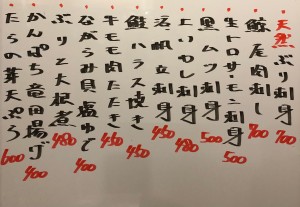 天然ぶり刺身 700
鯨尾肉刺し 700
生トロサーモン刺身 500
黒ムツ刺身 500
上りいわし刺身 480
活帆立刺身 450
鮭ハラス焼き 450
牛モモ肉たたき 450
ながらみ貝塩ゆで 400
ぶり大根煮 480
かんぱち竜田揚げ 400
たらの芽天ぷら 600